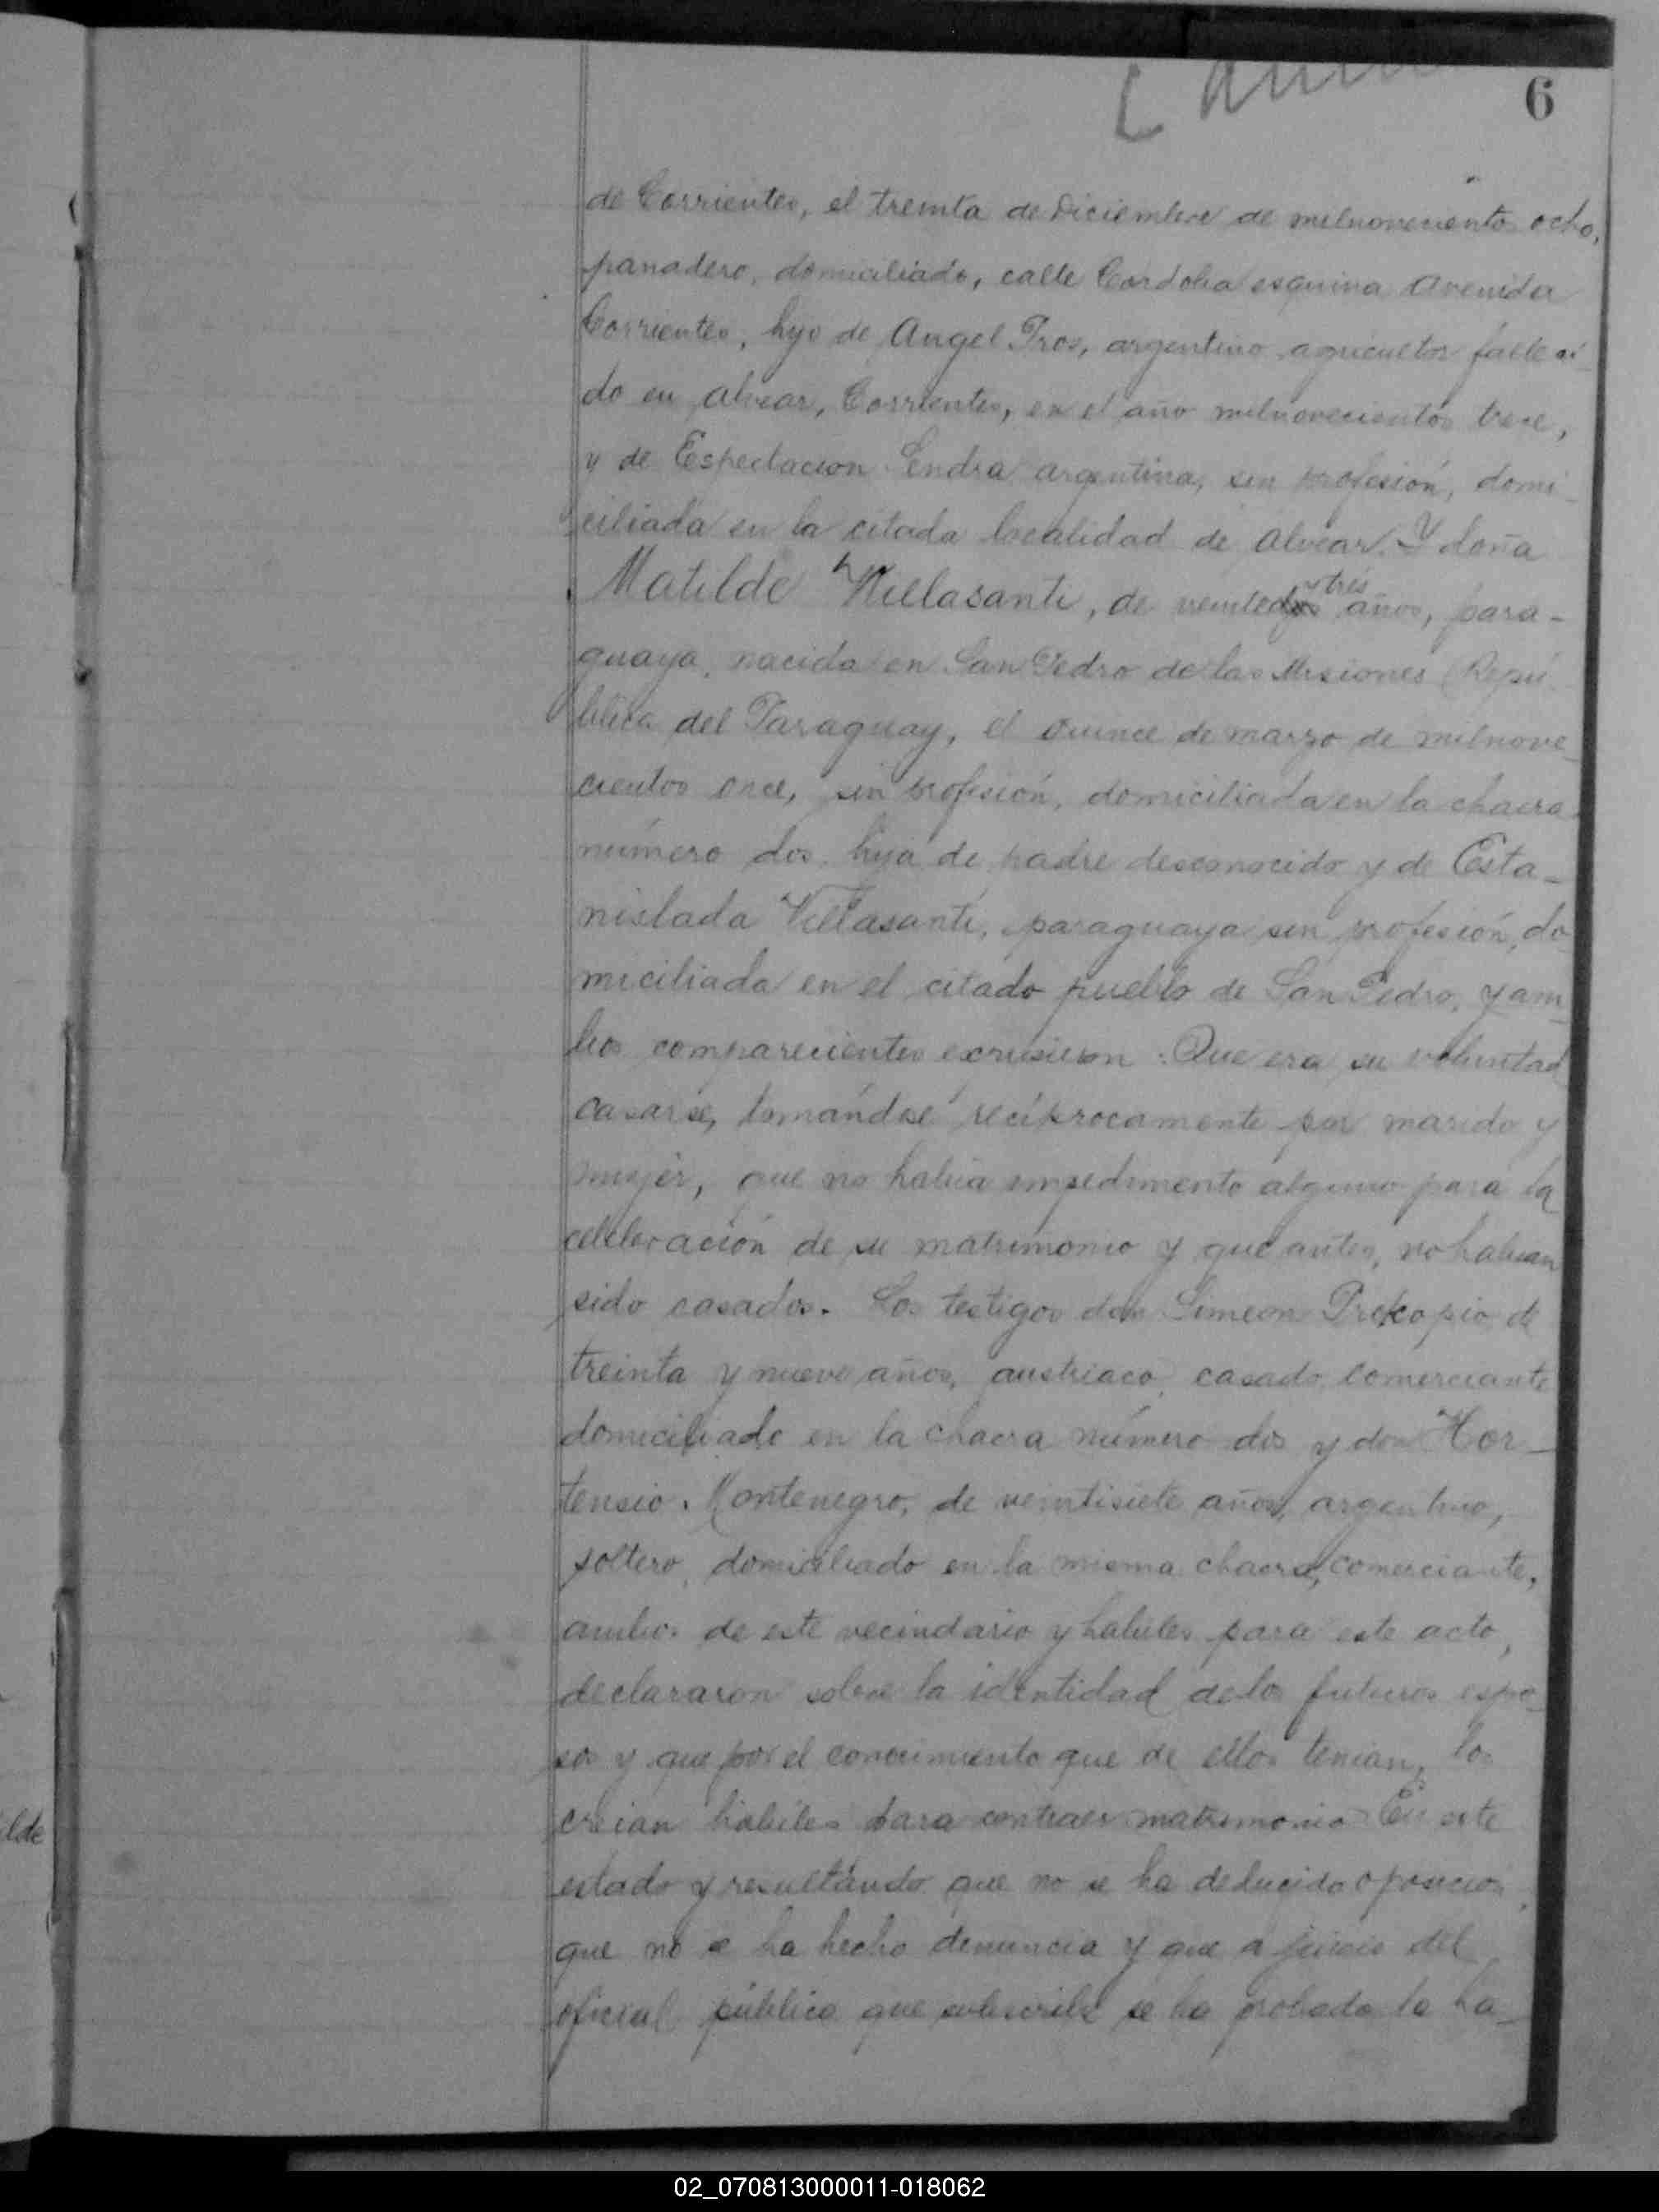 6
de Corrientes, el treinta de Diciembre de milnoveciento ocho,
panadero, domiciliado, calle Cordoba esquina Avenida
Corrientes, hijo de Angel Pros, argentino agricultor falleci-
do en Alvear, Corrientes, en el año milnovecientos trece,
y de Espectacion Sendra argentina, sin profesión, domi-
ciliada en la citada localidad de Alvear. Y doña
Matilde Villasanti, de veintedos y tres años, para-
guaya, nacida en San Pedro de las Misiones (Repú-
blica del Paraguay, el quince de marzo de milnove-
cientos once, sin profesión, domiciliada en la chacra
número dos, hija de padre desconocido y de Esta-
nislada Villasanti, paraguaya sin profesión, do-
miciliada en el citado pueblo de San Pedro, y am-
bos comparecientes expusieron: Que era su voluntad
casarse, tomándose recíprocamente por marido y
mujer, que no habia impedimento alguno para la
celebración de su matrimonio y que antes, no habian
sido casados. Los testigos don Simeon Prokopio, de
treinta y nueve años, austriaco, casado, comerciante
domiciliado en la chacra número dos y don Hor-
tensio Montenegro, de veintisiete años, argentino,
soltero, domiciliado en la misma chacra, comerciante,
ambos de este vecindario y habiles para este acto,
declararon sobre la identidad de los futuros espo-
sos y que por el conocimiento que de ellos tenian, los
creian habiles para contraer matrimonio En este
estado y resultando que no se ha deducido oposicion,
que no se ha hecho denuncia y que a juicio del
oficial público que subscribe se ha probado la ha-
ilde
02_070813000011-018062